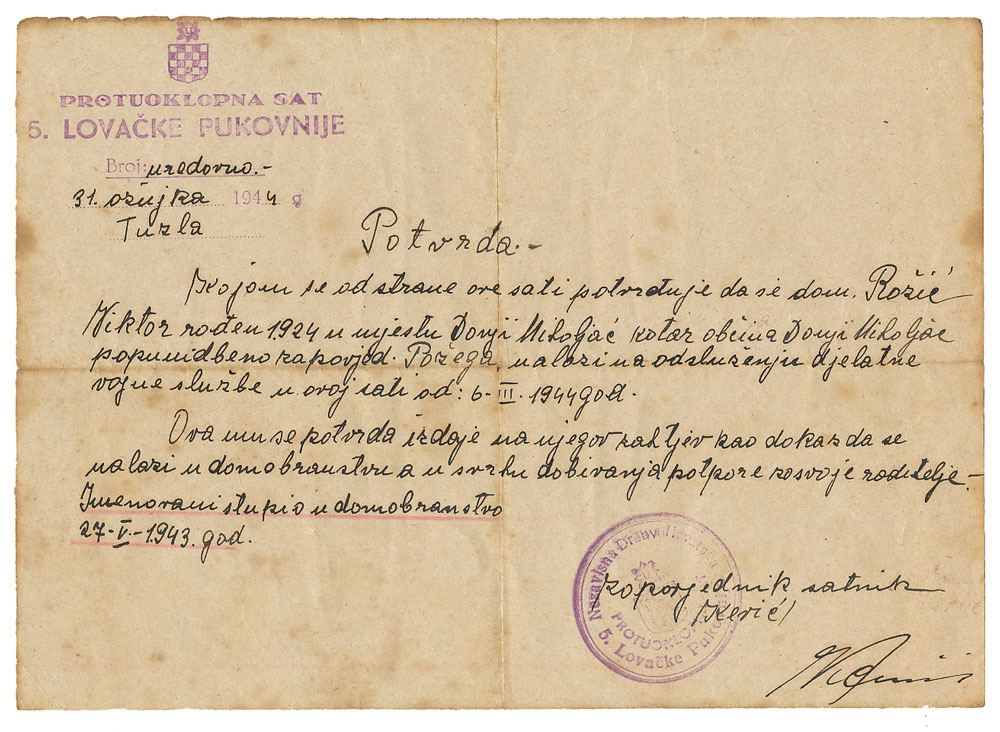 PROTUOKLOPNA SAT
5. LOVAČKE PUKOVNIJE
Broj: uredovno.-
31. ožujka 1944 g
Tuzla
Potvrda.-
Kojom se od strane ove sati potvrđuje da se dom. Rožić
Viktor rođen 1924 u mjestu Donji Miholjac kotar občina Donji Miholjac
popunidbeno zapovjed. Požega, nalazi na odsluženju djelatne
vojne službe u ovoj sati od: 6-III.1944 god.
Ova mu se potvrda izdaje na njegov zahtjev kao dokaz da se
nalazi u domobranstvu a u svrhu dobivanja potpore za svoje roditelje.-
Imenovani stupio u domobranstvo
27-V-1943. god.
Nezavisna Država Hrvatska
PROTUOKLOPNA
5. Lovačke Pukovnije
zapovjednik satnik